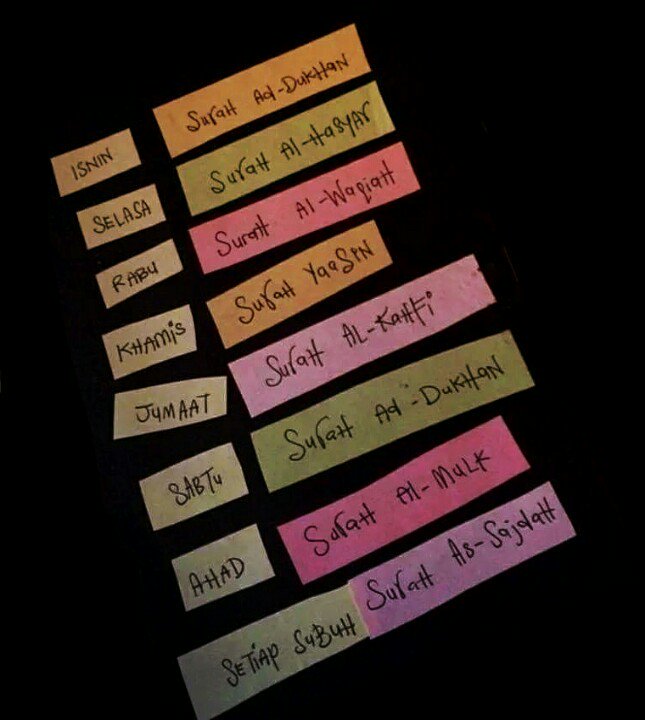 ISNIN Surah Ad-Dukhan
SELASA Surah Al-Hasyar
RABU Surah Al-Waqiah
KHAMiS Surah YaaSiN
JUMAAT Surah AL-Kahfi
SABTu Surah Ad-Dukhan
AHAD Surah Al-Mulk
SETiAP SuBuH Surah As-Sajdah